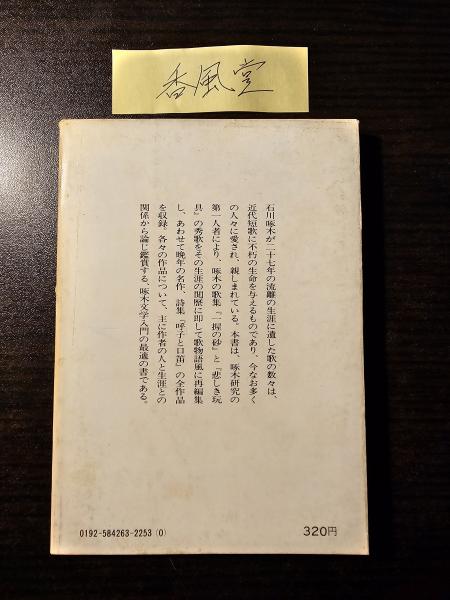 香風堂
石川啄木が二十七年の流離の生涯に遺した歌の数々は、
近代短歌に不朽の生命を与えるものであり、今なお多く
の人々に愛され、親しまれている。本書は、啄木研究の
第一人者により、啄木の歌集『一握の砂』と『悲しき玩
具』の秀歌をその生涯の閲歴に即して歌物語風に再編集
し、あわせて晩年の名作、詩集『呼子と口笛』の全作品
を収録、各々の作品について、主に作者の人と生涯との
関係から論じ鑑賞する、啄木文学入門の最適の書である。
0192-584263-2253(0)
320円